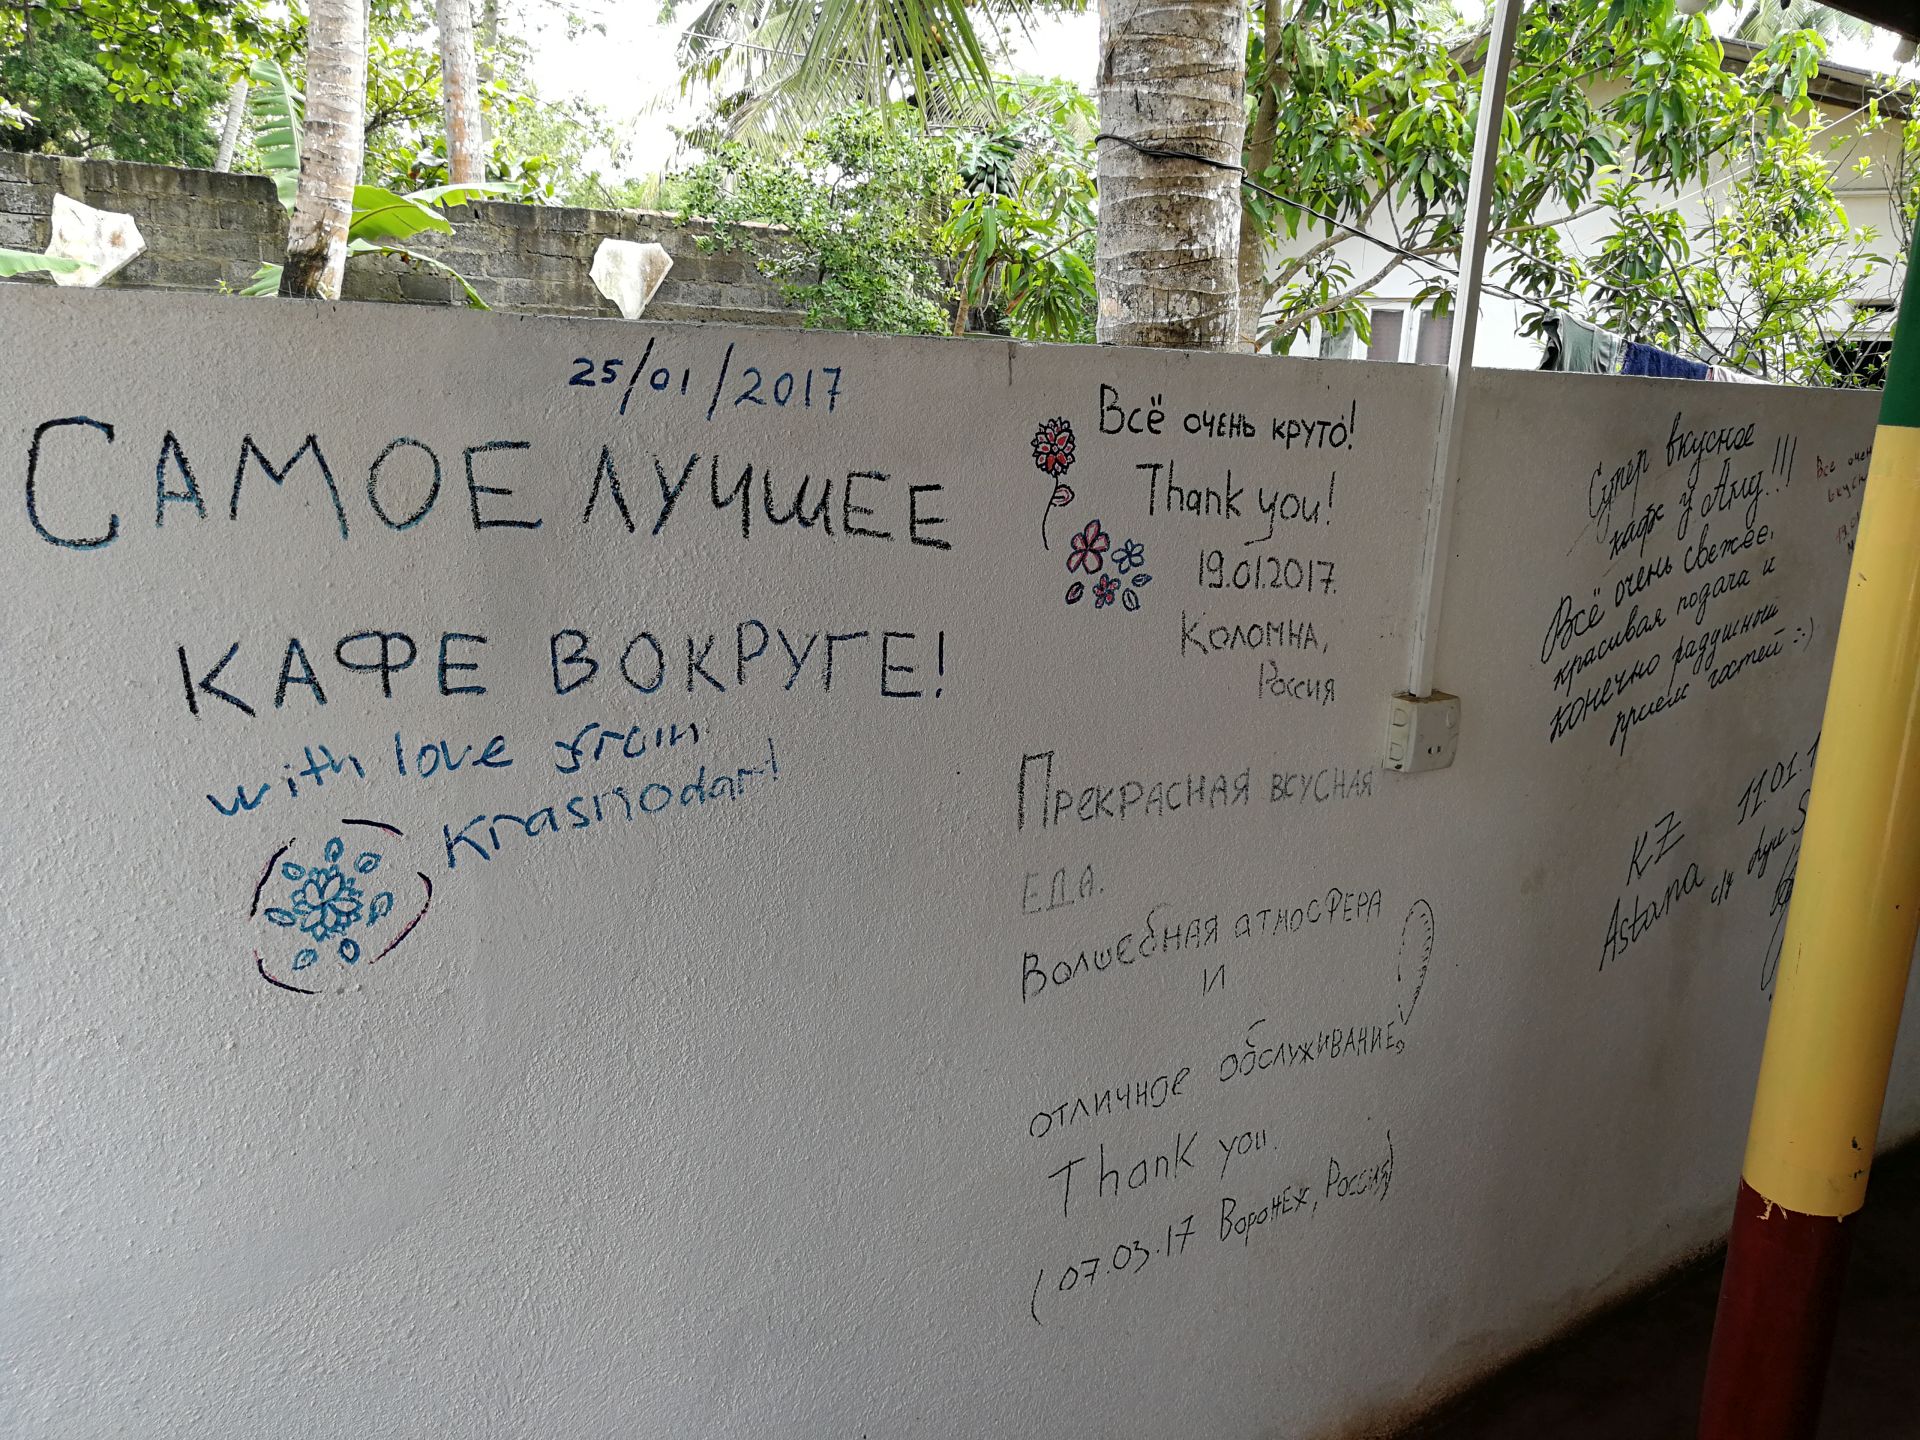 25/01/2017
САМОЕ ЛУЧШЕЕ
КАФЕ ВОКРУГЕ!
with love from
Krasnodar!
Всё очень круто!
Thank you!
19.01.2017.
Коломна,
Россия
Прекрасная вкусная
еда.
Волшебная атмосфера
и
отличное обслуживание!
Thank you.
(07.03.17 Воронеж, Россия)
Супер вкусное
кафе у Аму!!!
Всё очень свежее,
красивая подача и
конечно радушный
прием гостей :-)
11.01.1
KZ
Astana
Все очен
вкусн